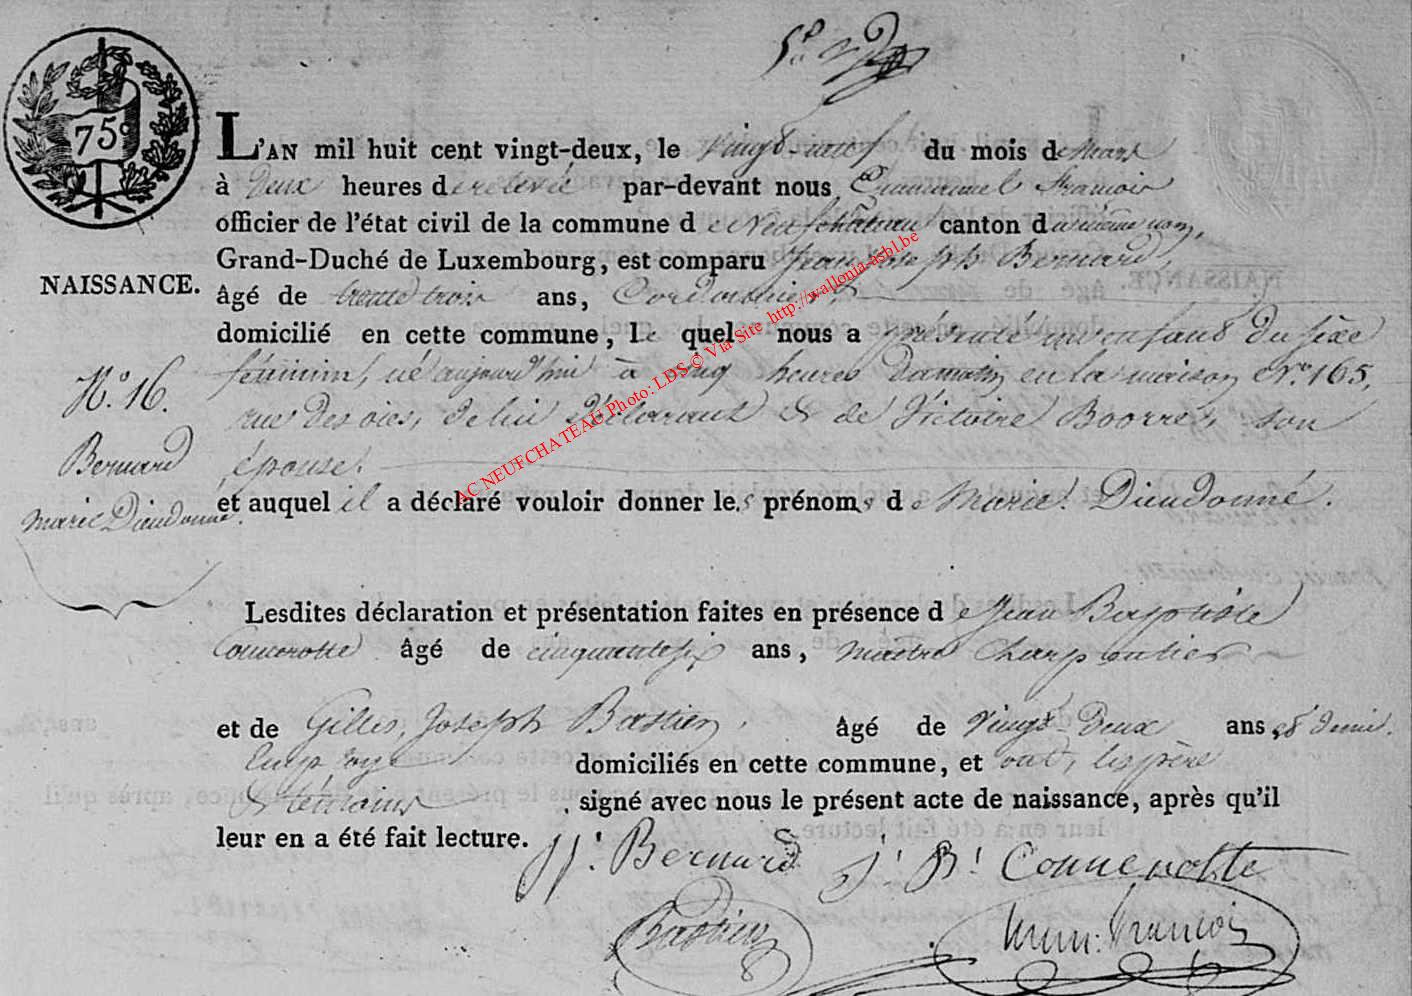 75c
L'AN mil huit cent vingt-deux, le Vingt-neuf du mois de Mars
à Deux heures de relevé par-devant nous Emmanuel François
officier de l'état civil de la commune de Neufchâteau canton du même nom,
Grand-Duché de Luxembourg, est comparu Jean Joseph Bernard,
NAISSANCE.
âgé de trente trois ans, Cordonnier,
domicilié en cette commune, Le quel nous a présenté un enfant du sèxe
féminin, né aujourd'hui à cinq heures du matin en la maison No. 165,
No. 16.
rue des oies, de lui Déclarant & de Victoire Boorré, son
Bernard
épouse.
et auquel il a déclaré vouloir donner les prénoms de Marie Dieudonné.
Marie Dieudonné.
Lesdites déclaration et présentation faites en présence de Jean Baptiste
Connerotte âgé de cinquante six ans, maître Charpentier
et de Gilles, Joseph Bastien, âgé de Vingt-Deux ans et demi.
Employé domiciliés en cette commune, et ont, les père
& témoins signé avec nous le présent acte de naissance, après qu'il
leur en a été fait lecture.
JJ. Bernard J. B. Connerotte
Bastien François
AC NEUFCHATEAU Photo: LDS © Via Site http://wallonia-asbl.be